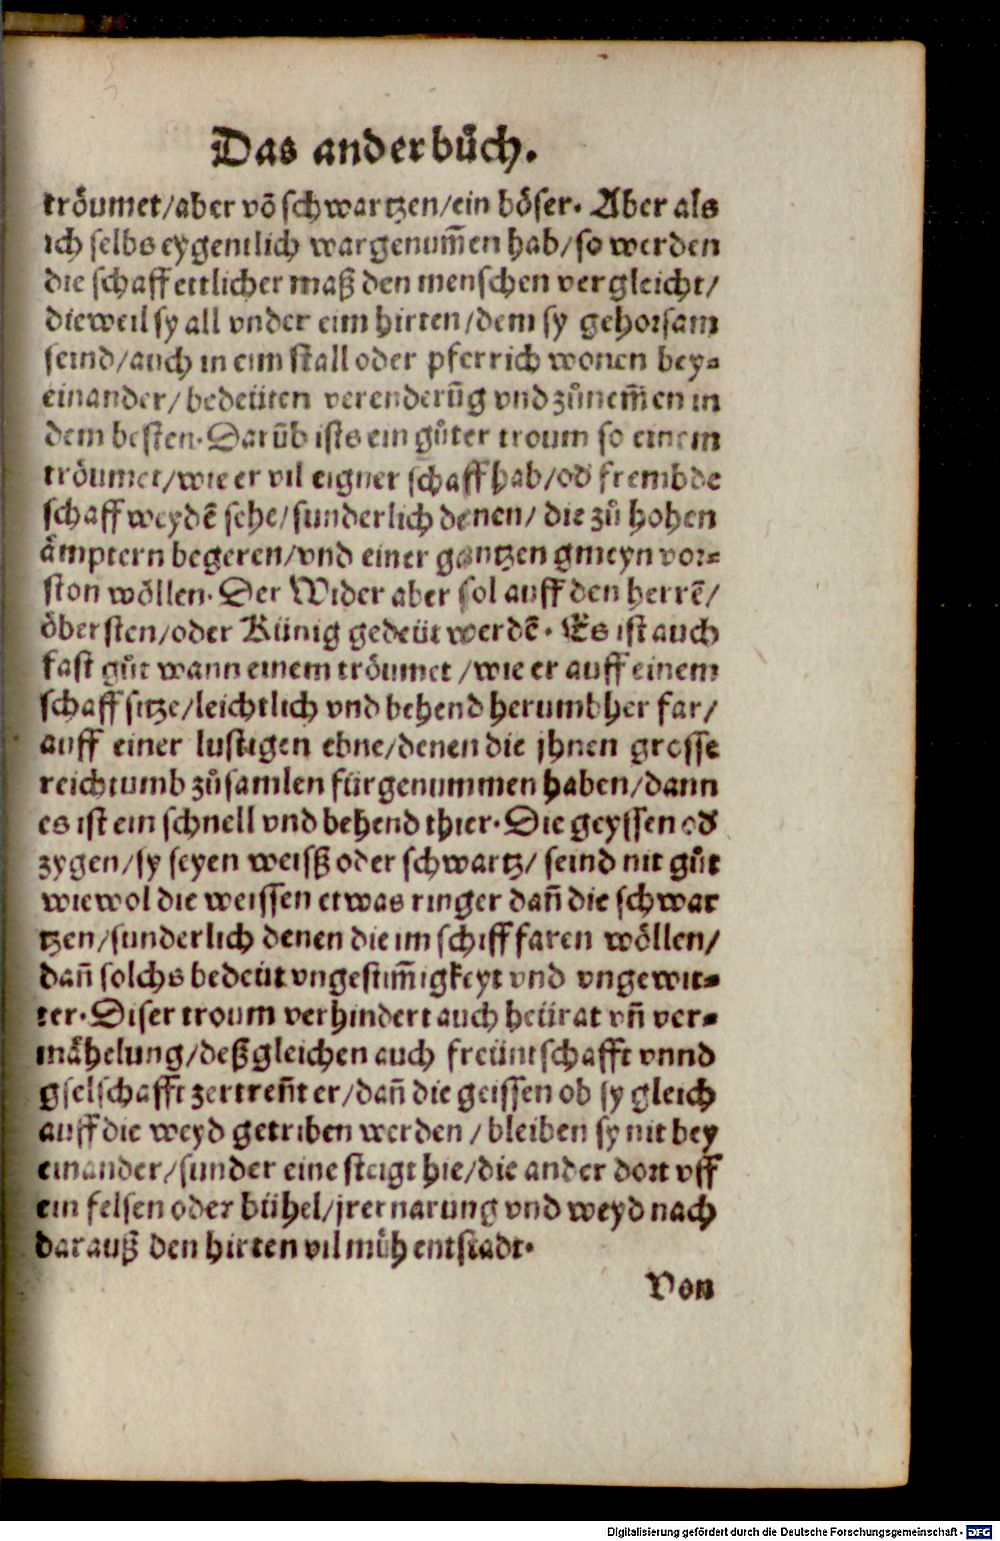 Das ander buͦch.
troͤumet/aber võ schwartzen/ein boͤser. Aber als
ich selbs eygentlich wargenum̃en hab/so werden
die schaff ettlicher maß den menschen vergleicht/
dieweil sy all vnder eim hirten/dem sy gehorsam
seind/auch in eim stall oder pferrich wonen bey⸗
einander/bedeüten verenderũg vnd zuͦnem̃en in
dem besten. Darũb ists ein guͦter troum so einem
troͤumet/wie er vil eigner schaff hab/od̕ frembde
schaff weydẽ sehe/sunderlich denen/ die zuͦ hohen
aͤmptern begeren/vnd einer gantzen gmeyn vor⸗
ston woͤllen. Der Wider aber sol auff den herrẽ/
oͤbersten/oder Künig gedeüt werdẽ. Es ist auch
fast guͦt wann einem troͤumet /wie er auff einem
schaff sitze/leichtlich vnd behend herumbher far/
auff einer lustigen ebne/denen die jhnen grosse
reichtumb zuͦsamlen fürgenummen haben/dann
es ist ein schnell vnd behend thier. Die geyssen od̕
zygen/sy seyen weisß oder schwartz/ seind nit guͦt
wiewol die weissen etwas ringer dañ die schwar
tzen/sunderlich denen die im schiff faren woͤllen/
dañ solchs bedeüt vngestim̃igkeyt vnd vngewit⸗
ter. Diser troum verhindert auch heürat vñ ver⸗
maͤhelung/deßgleichen auch freüntschafft vnnd
gselschafft zertreñt er/dañ die geissen ob sy gleich
auff die weyd getriben werden / bleiben sy nit bey
einander/sunder eine steigt hie/die ander dort vff
ein felsen oder bühel/jrer narung vnd weyd nach
darauß den hirten vil muͤh entstadt.
Von
Digitalisierung gefördert durch die Deutsche Forschungsgemeinschaft - DFG